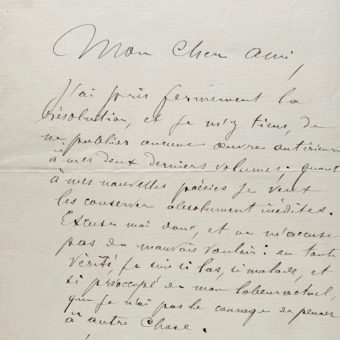 Mon cher ami,
J'ai pris fermement la
résolution, et je m'y tiens, de
ne publier aucune œuvre antérieure
à mes deux derniers volumes : quant
à mes nouvelles poésies je veux
les conserver absolument inédites.
Excusez moi donc, et ne m'accusez
pas de mauvais vouloir : en toute
vérité, je suis si las, si malade, et
si préoccupé de mon labeur actuel,
que je n'ai pas le courage de penser
à autre chose.